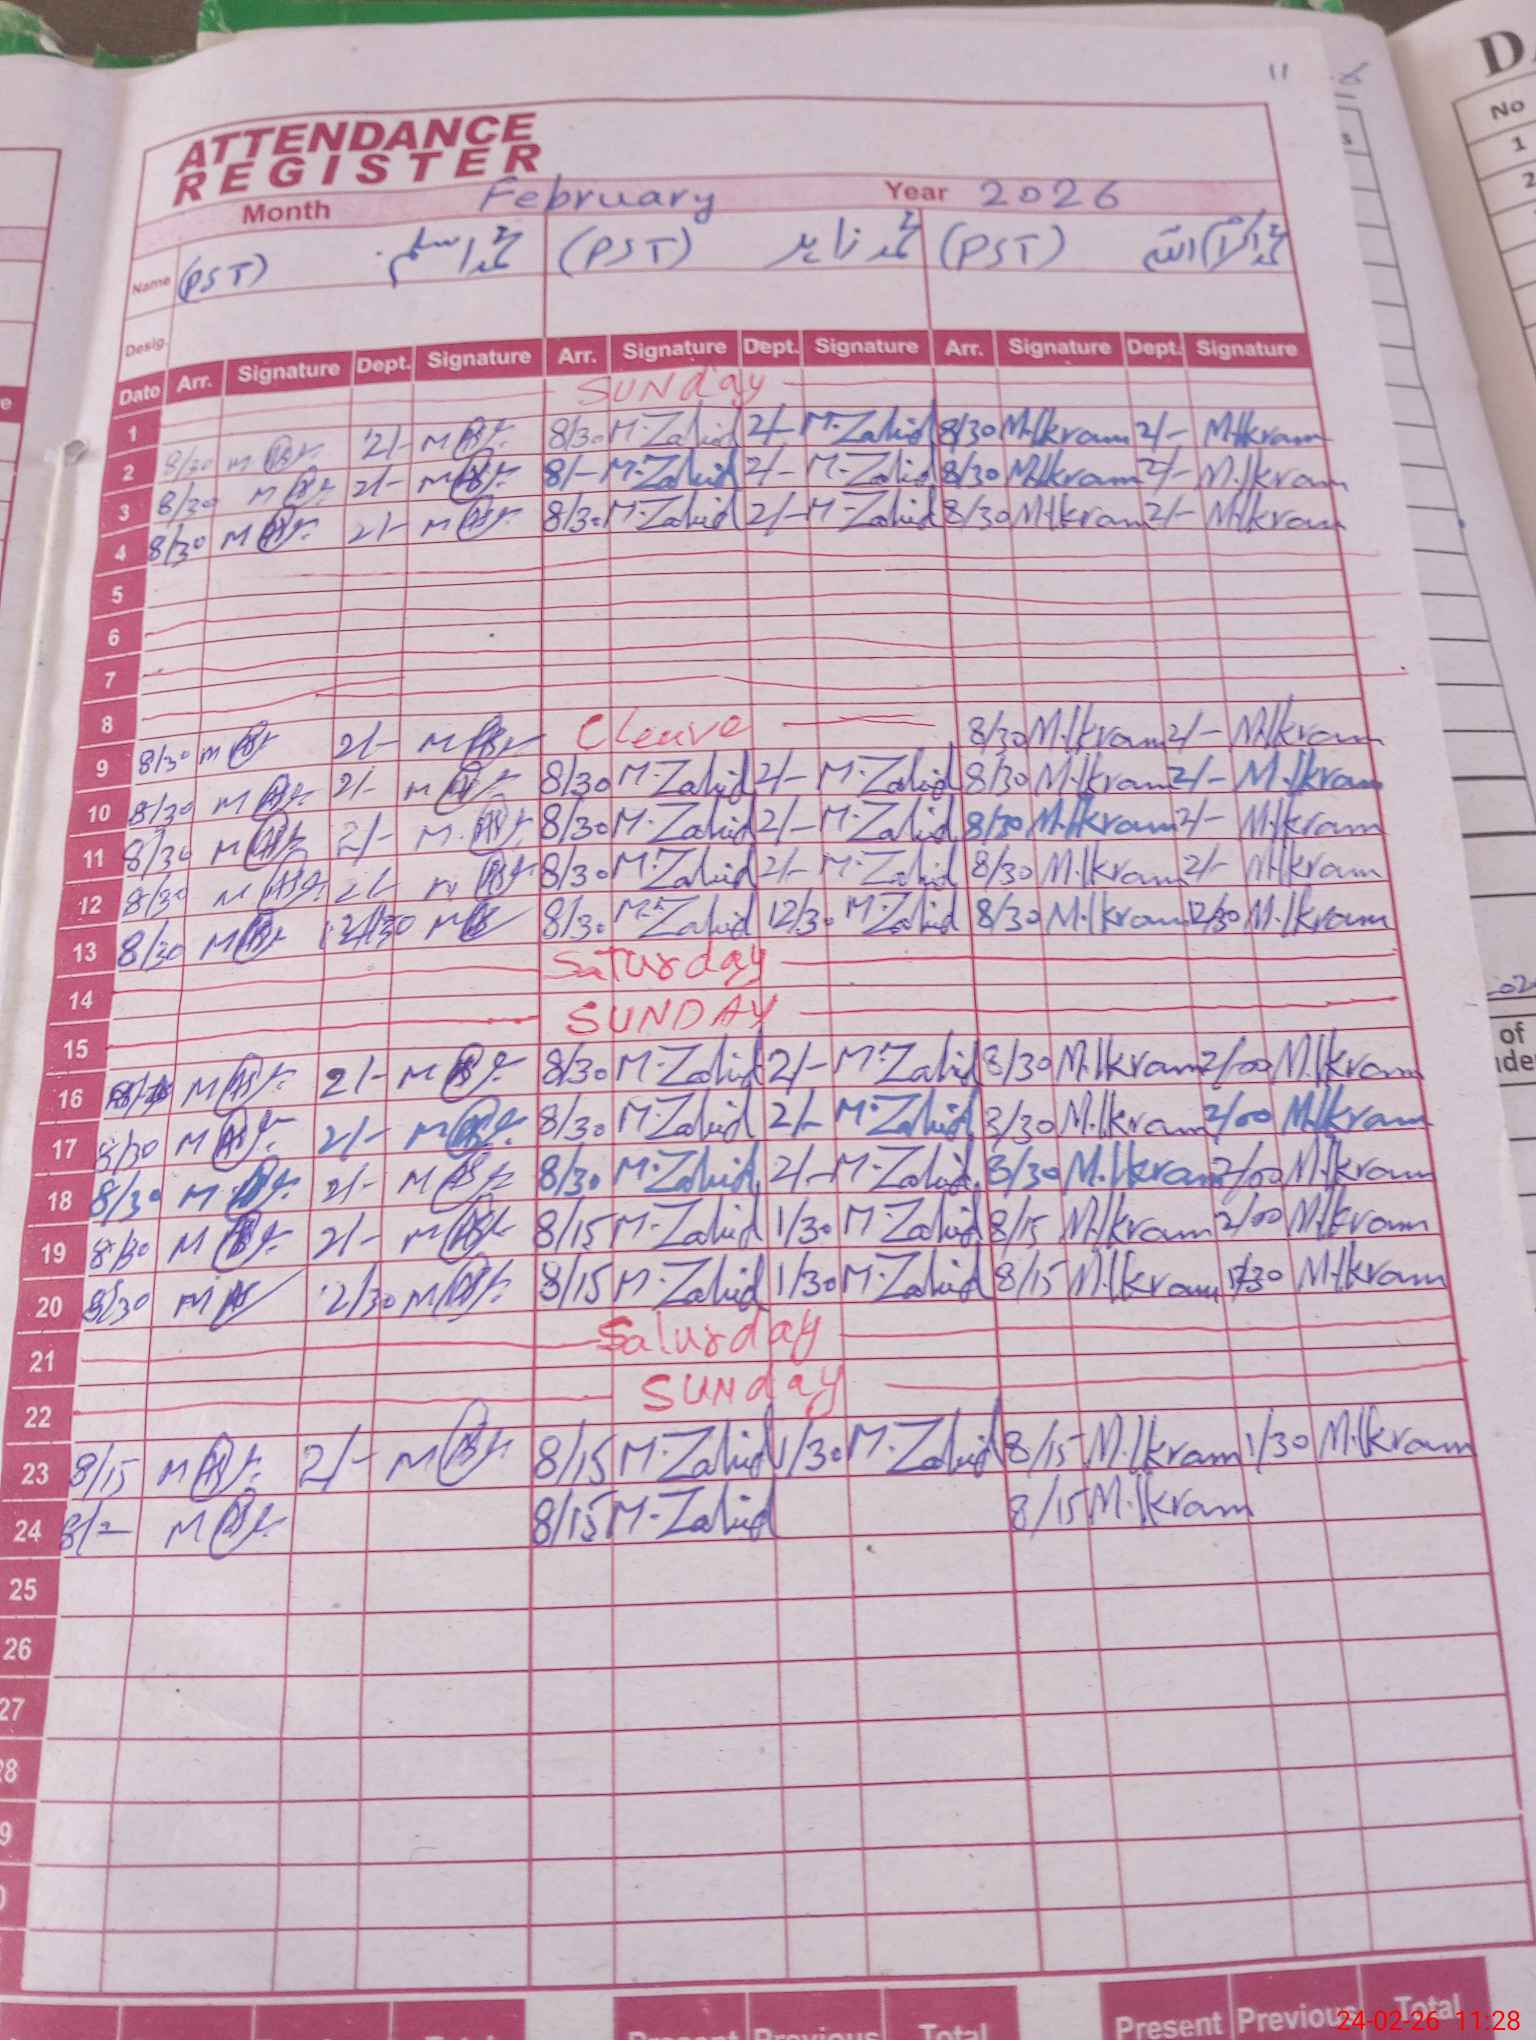 11
ATTENDANCE
REGISTER
Month February Year 2026
Name (PST) محمد اسلم (PST) محمد زاہد (PST) محمد اکرام اللہ
Desig.
Date Arr. Signature Dept. Signature Arr. Signature Dept. Signature Arr. Signature Dept. Signature
1 SUNday
2 8/30 2/- 8/30 M.Zahid 2/- M.Zahid 8/30 M.Ikram 2/- M.Ikram
3 8/30 2/- 8/- M.Zahid 2/- M.Zahid 8/30 M.Ikram 2/- M.Ikram
4 8/30 2/- 8/30 M.Zahid 2/- M.Zahid 8/30 M.Ikram 2/- M.Ikram
5
6
7
8
9 8/30 2/- Cleave 8/30 M.Ikram 2/- M.Ikram
10 8/30 2/- 8/30 M.Zahid 2/- M.Zahid 8/30 M.Ikram 2/- M.Ikram
11 8/30 2/- 8/30 M.Zahid 2/- M.Zahid 8/30 M.Ikram 2/- M.Ikram
12 8/30 2/- 8/30 M.Zahid 2/- M.Zahid 8/30 M.Ikram 2/- M.Ikram
13 8/30 12/30 8/30 M.Zahid 12/30 M.Zahid 8/30 M.Ikram 12/30 M.Ikram
14 Saturday
15 SUNDAY
16 2/- 8/30 M.Zahid 2/- M.Zahid 8/30 M.Ikram 2/00 M.Ikram
17 8/30 2/- 8/30 M.Zahid 2/- M.Zahid 8/30 M.Ikram 2/00 M.Ikram
18 8/30 2/- 8/30 M.Zahid 2/- M.Zahid 8/30 M.Ikram 2/00 M.Ikram
19 8/30 2/- 8/15 M.Zahid 1/30 M.Zahid 8/15 M.Ikram 2/00 M.Ikram
20 8/30 12/30 8/15 M.Zahid 1/30 M.Zahid 8/15 M.Ikram M.Ikram
21 Saturday
22 SUNday
23 8/15 2/- 8/15 M.Zahid 1/30 M.Zahid 8/15 M.Ikram 1/30 M.Ikram
24 8/15 M.Zahid 8/15 M.Ikram
25
26
27
28
Present Previous Total Present Previous Total
24-02-26 11:28